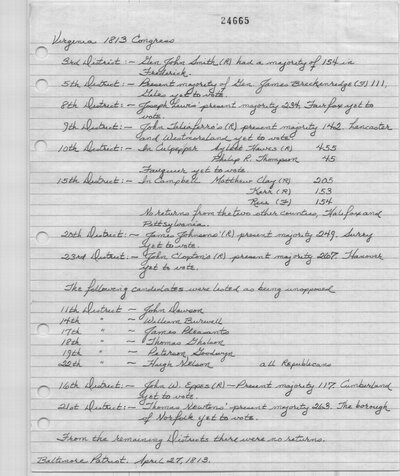 24665
Virginia 1813 Congress
3rd District:- Gen. John Smith (R) had a majority of 154 in
Frederick.
5th District:- Present majority of Gen. James Breckenridge (F) 111,
Giles yet to vote.
8th District:- Joseph Lewis' present majority 234. Fairfax yet to
vote.
9th District:- John Taliaferro's (R) present majority 142. Lancaster
and Westmoreland yet to vote.
10th District:- In Culpepper Aylett Hawes (R) 455
Philip R. Thompson 45
Fauquier yet to vote.
15th District:- In Campbell Matthew Clay (R) 205
Kerr (R) 153
(F) 154
No returns from the two other counties, Halifax and
Pittsylvania.
District:- James Johnson's (R) present majority 249. Surry
yet to vote.
23rd District:- John Clopton's (R) present majority 267. Hanover
yet to vote.
The following candidates were listed as being unopposed
11th District ~ John Dawson
14th " ~ William Burwell
17th " ~ James Pleasants
18th " ~ Thomas Gholson
19th " ~ Peterson Goodwyn
22th " ~ Hugh Nelson all Republicans
16th District:- John W. Eppes (R) - Present majority 117. Cumberland
yet to vote.
21st District:- Thomas Newton's present majority 263. The borough
of Norfolk yet to vote.
From the remaining Districts there were no returns.
Baltimore Patriot. April 27, 1813.